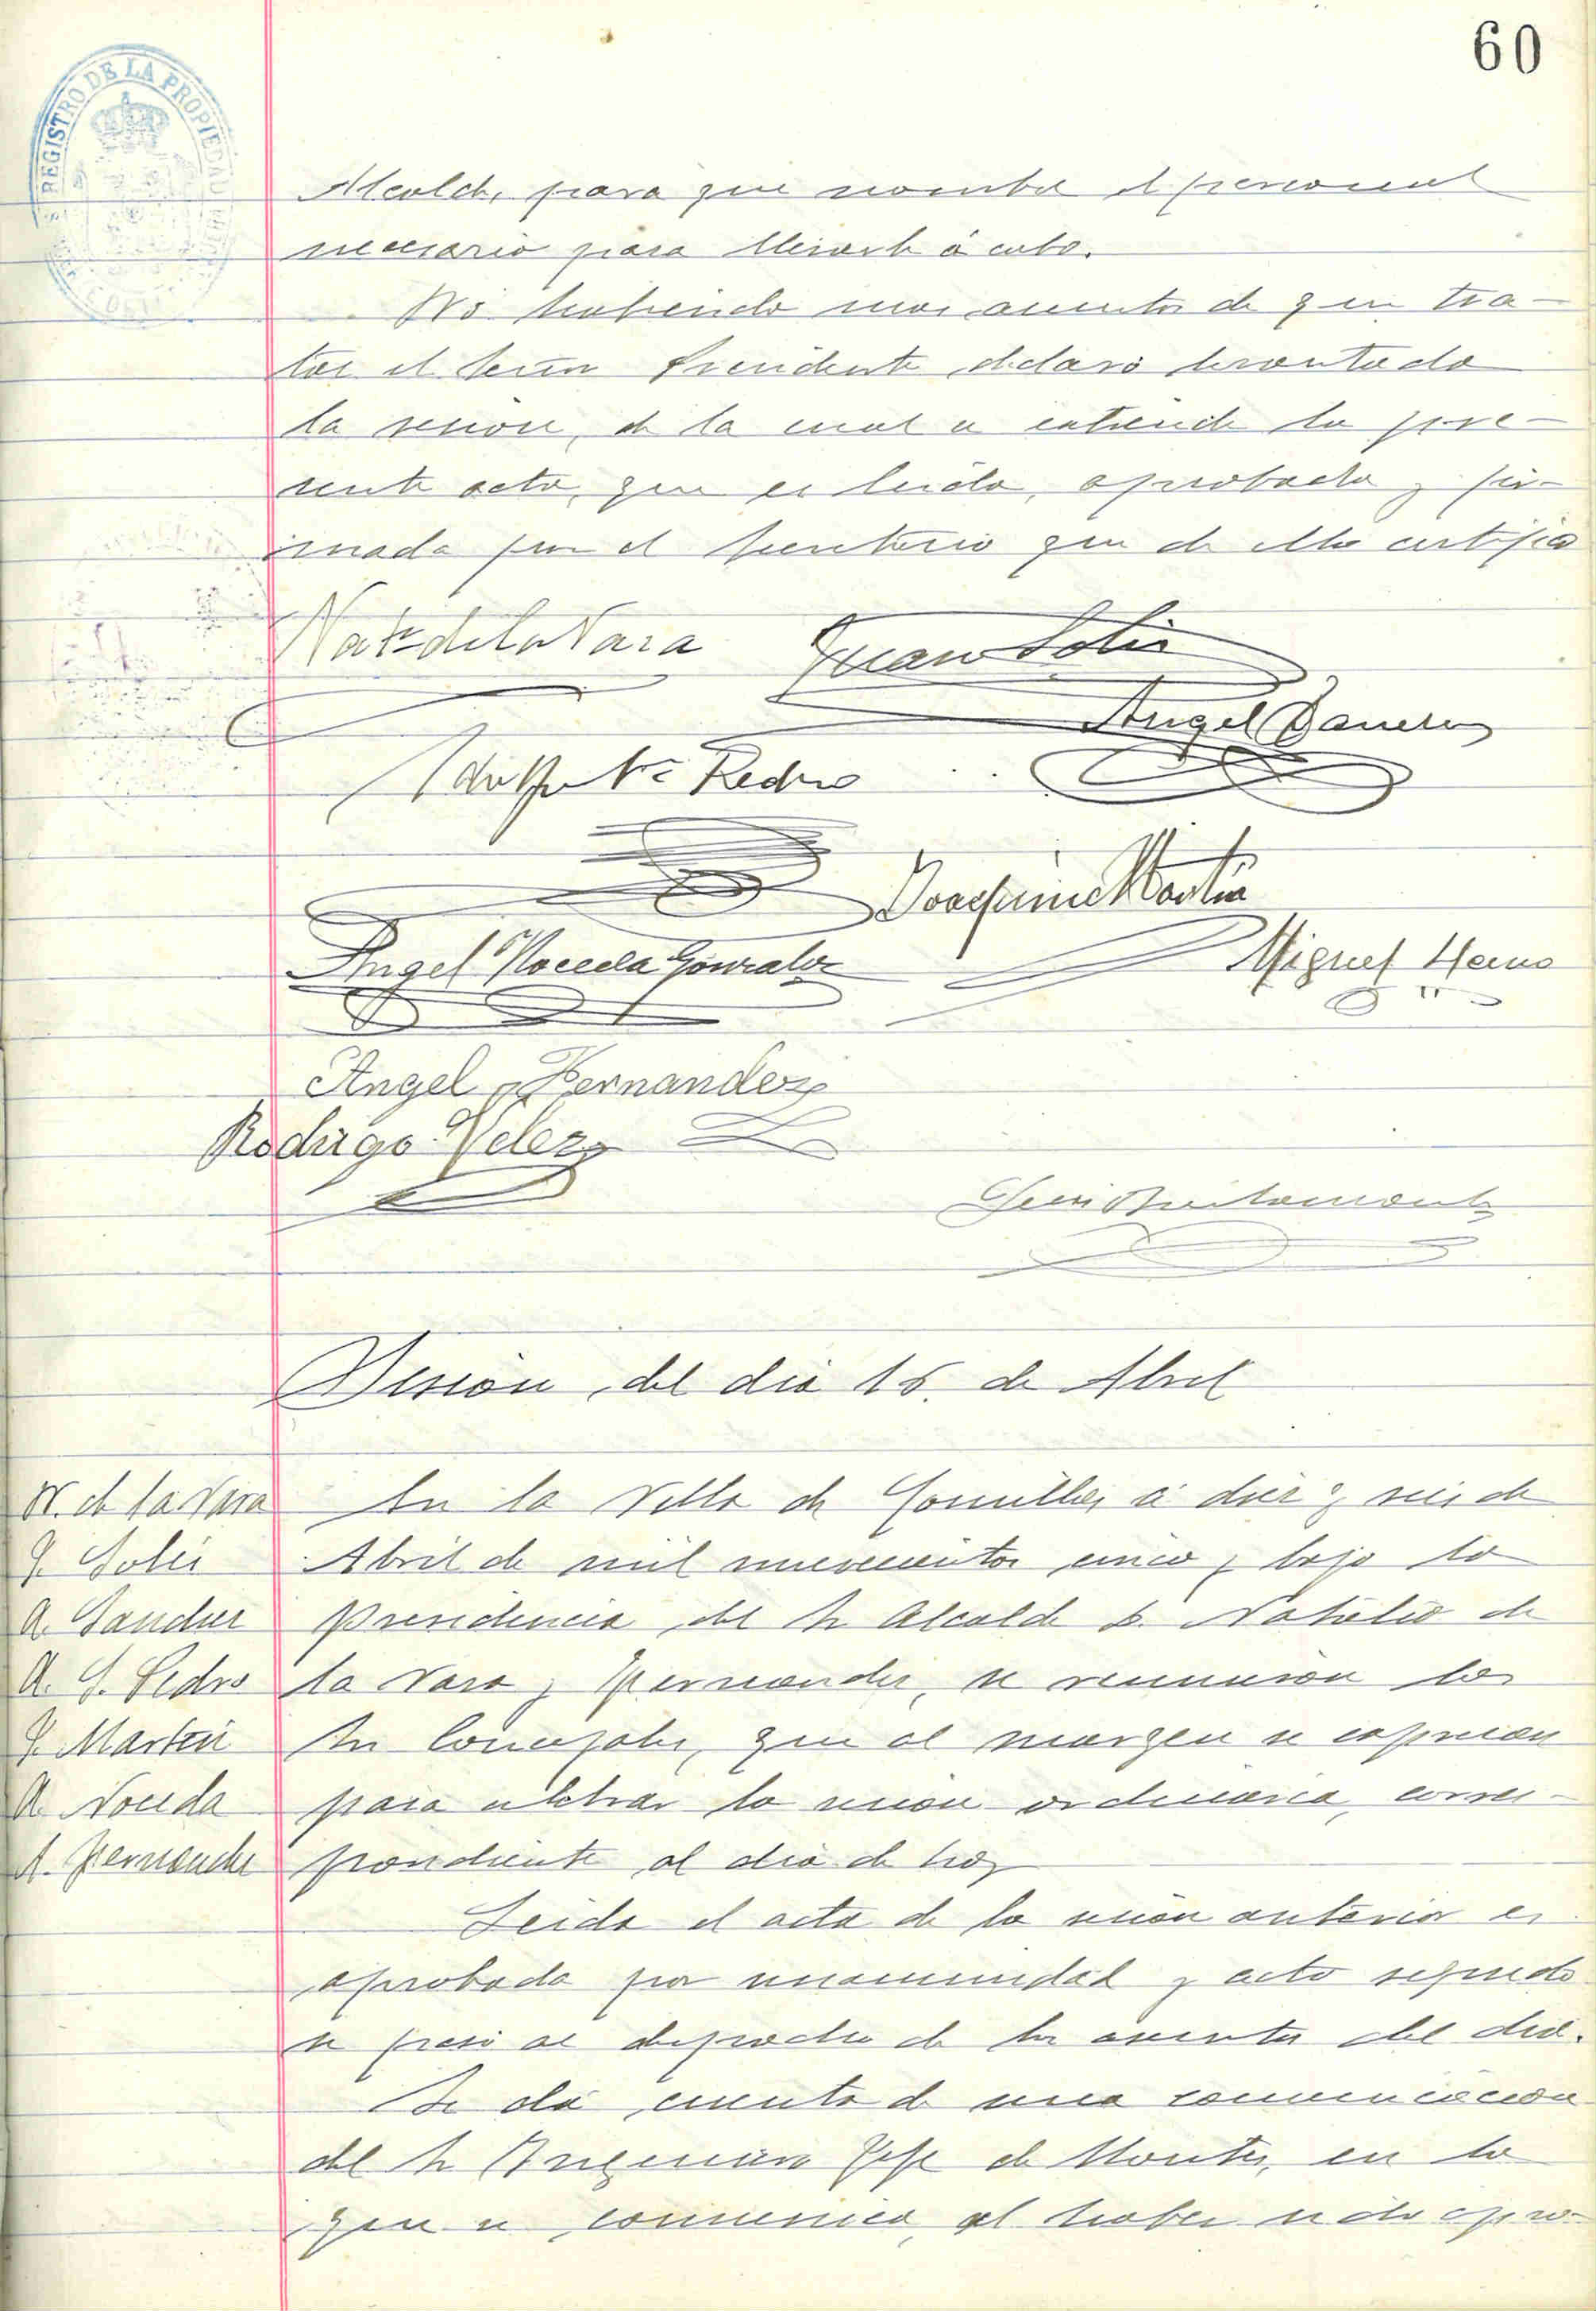 60
REGISTRO DE LA PROPIEDAD
Alcalde, para que nombre el personal
necesario para llevarle á cabo.
No habiendo mas asuntos de que tra-
tar el Señor Presidente declaró levantada
la sesion, de la cual se extiende la pre-
sente acta, que es leida, aprobada y fir-
mada por el Secretario que de ella certifico
Nat. de la Vara
Juan Solis
Angel Sanchez
Adolfo S. Pedro
Joaquin Martin
Angel Noceda Gonzalez
Miguel
Angel Fernandez
Rodrigo Velez
Jesus Bustamante
Sesion del dia 16 de Abril
N. de la Vara
J. Solis
A. Sanchez
A. S. Pedro
J. Martin
A. Noceda
A. Fernandez
En la Villa de Comillas á diez y seis de
Abril de mil novecientos cinco y bajo la
presidencia del Sr Alcalde D. Natalio de
la Vara y Fernandez, se reunieron los
Sres Concejales, que al margen se expresan
para celebrar la sesion ordinaria, corres-
pondiente al dia de hoy
Leida el acta de la sesion anterior es
aprobada por unanimidad y acto seguido
se pasó al despacho de los asuntos del dia.
Se dá cuenta de una comunicacion
del Sr Ingeniero Jefe de Montes, en la
que se comunica el haber sido apro-